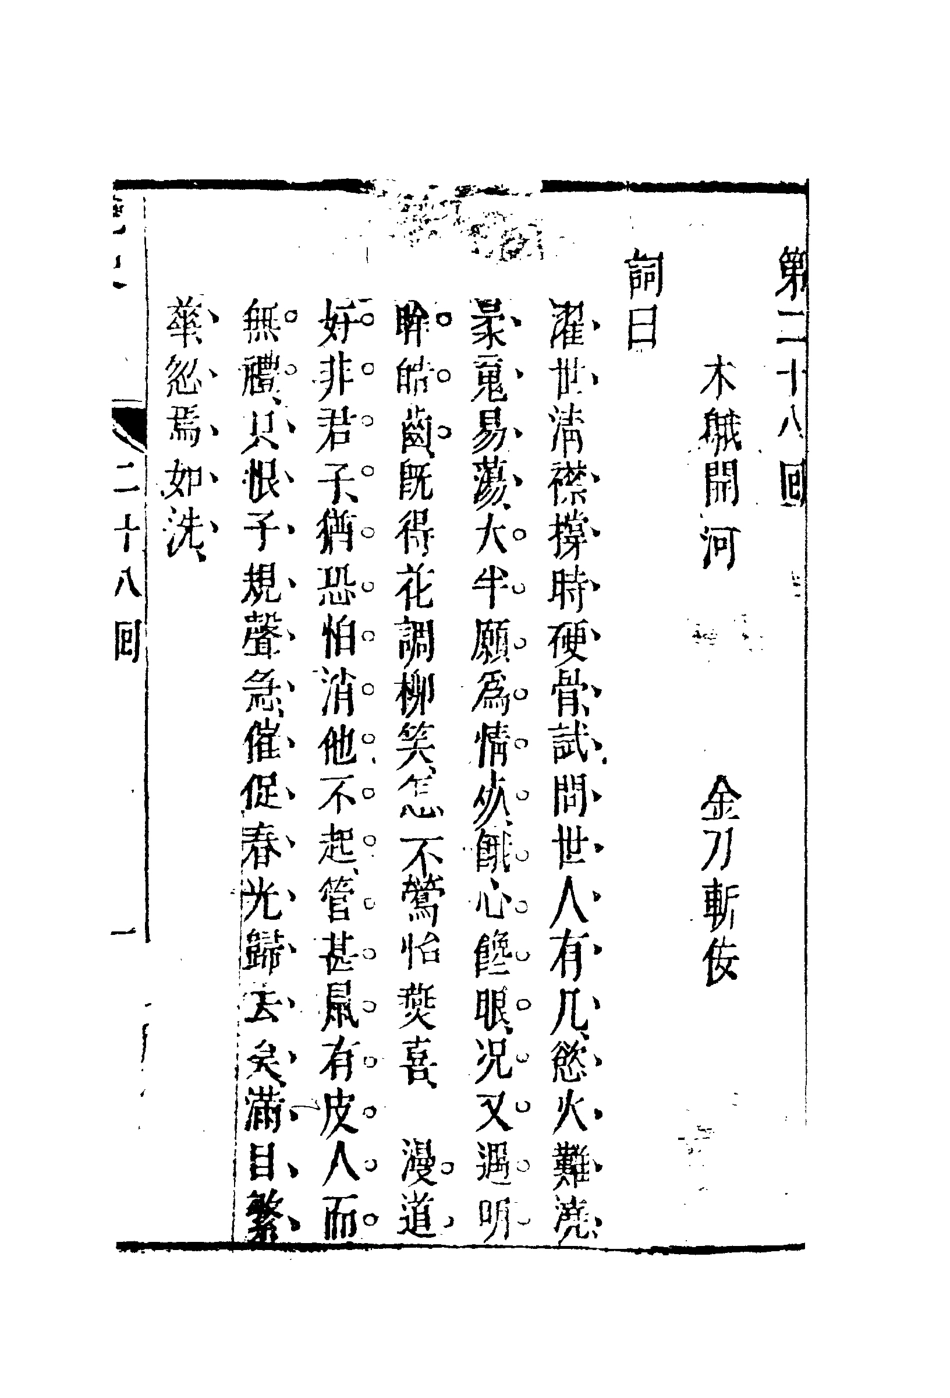 第二十八回
木鵝開河　金刀斬佞
詞曰
濯世清襟撐時硬骨試問世人有几慾火難澆
衆䰟易蕩大半願爲情死餓心饞眼况又遇明
眸皓齒旣得花調柳笑怎不鶯怡燕喜　漫道
好非君子猶恐怕消他不起管甚鼠有皮人而
無禮只恨子規聲急催促春光歸去矣滿目繁
華忽焉如洗
史
二十八回
一